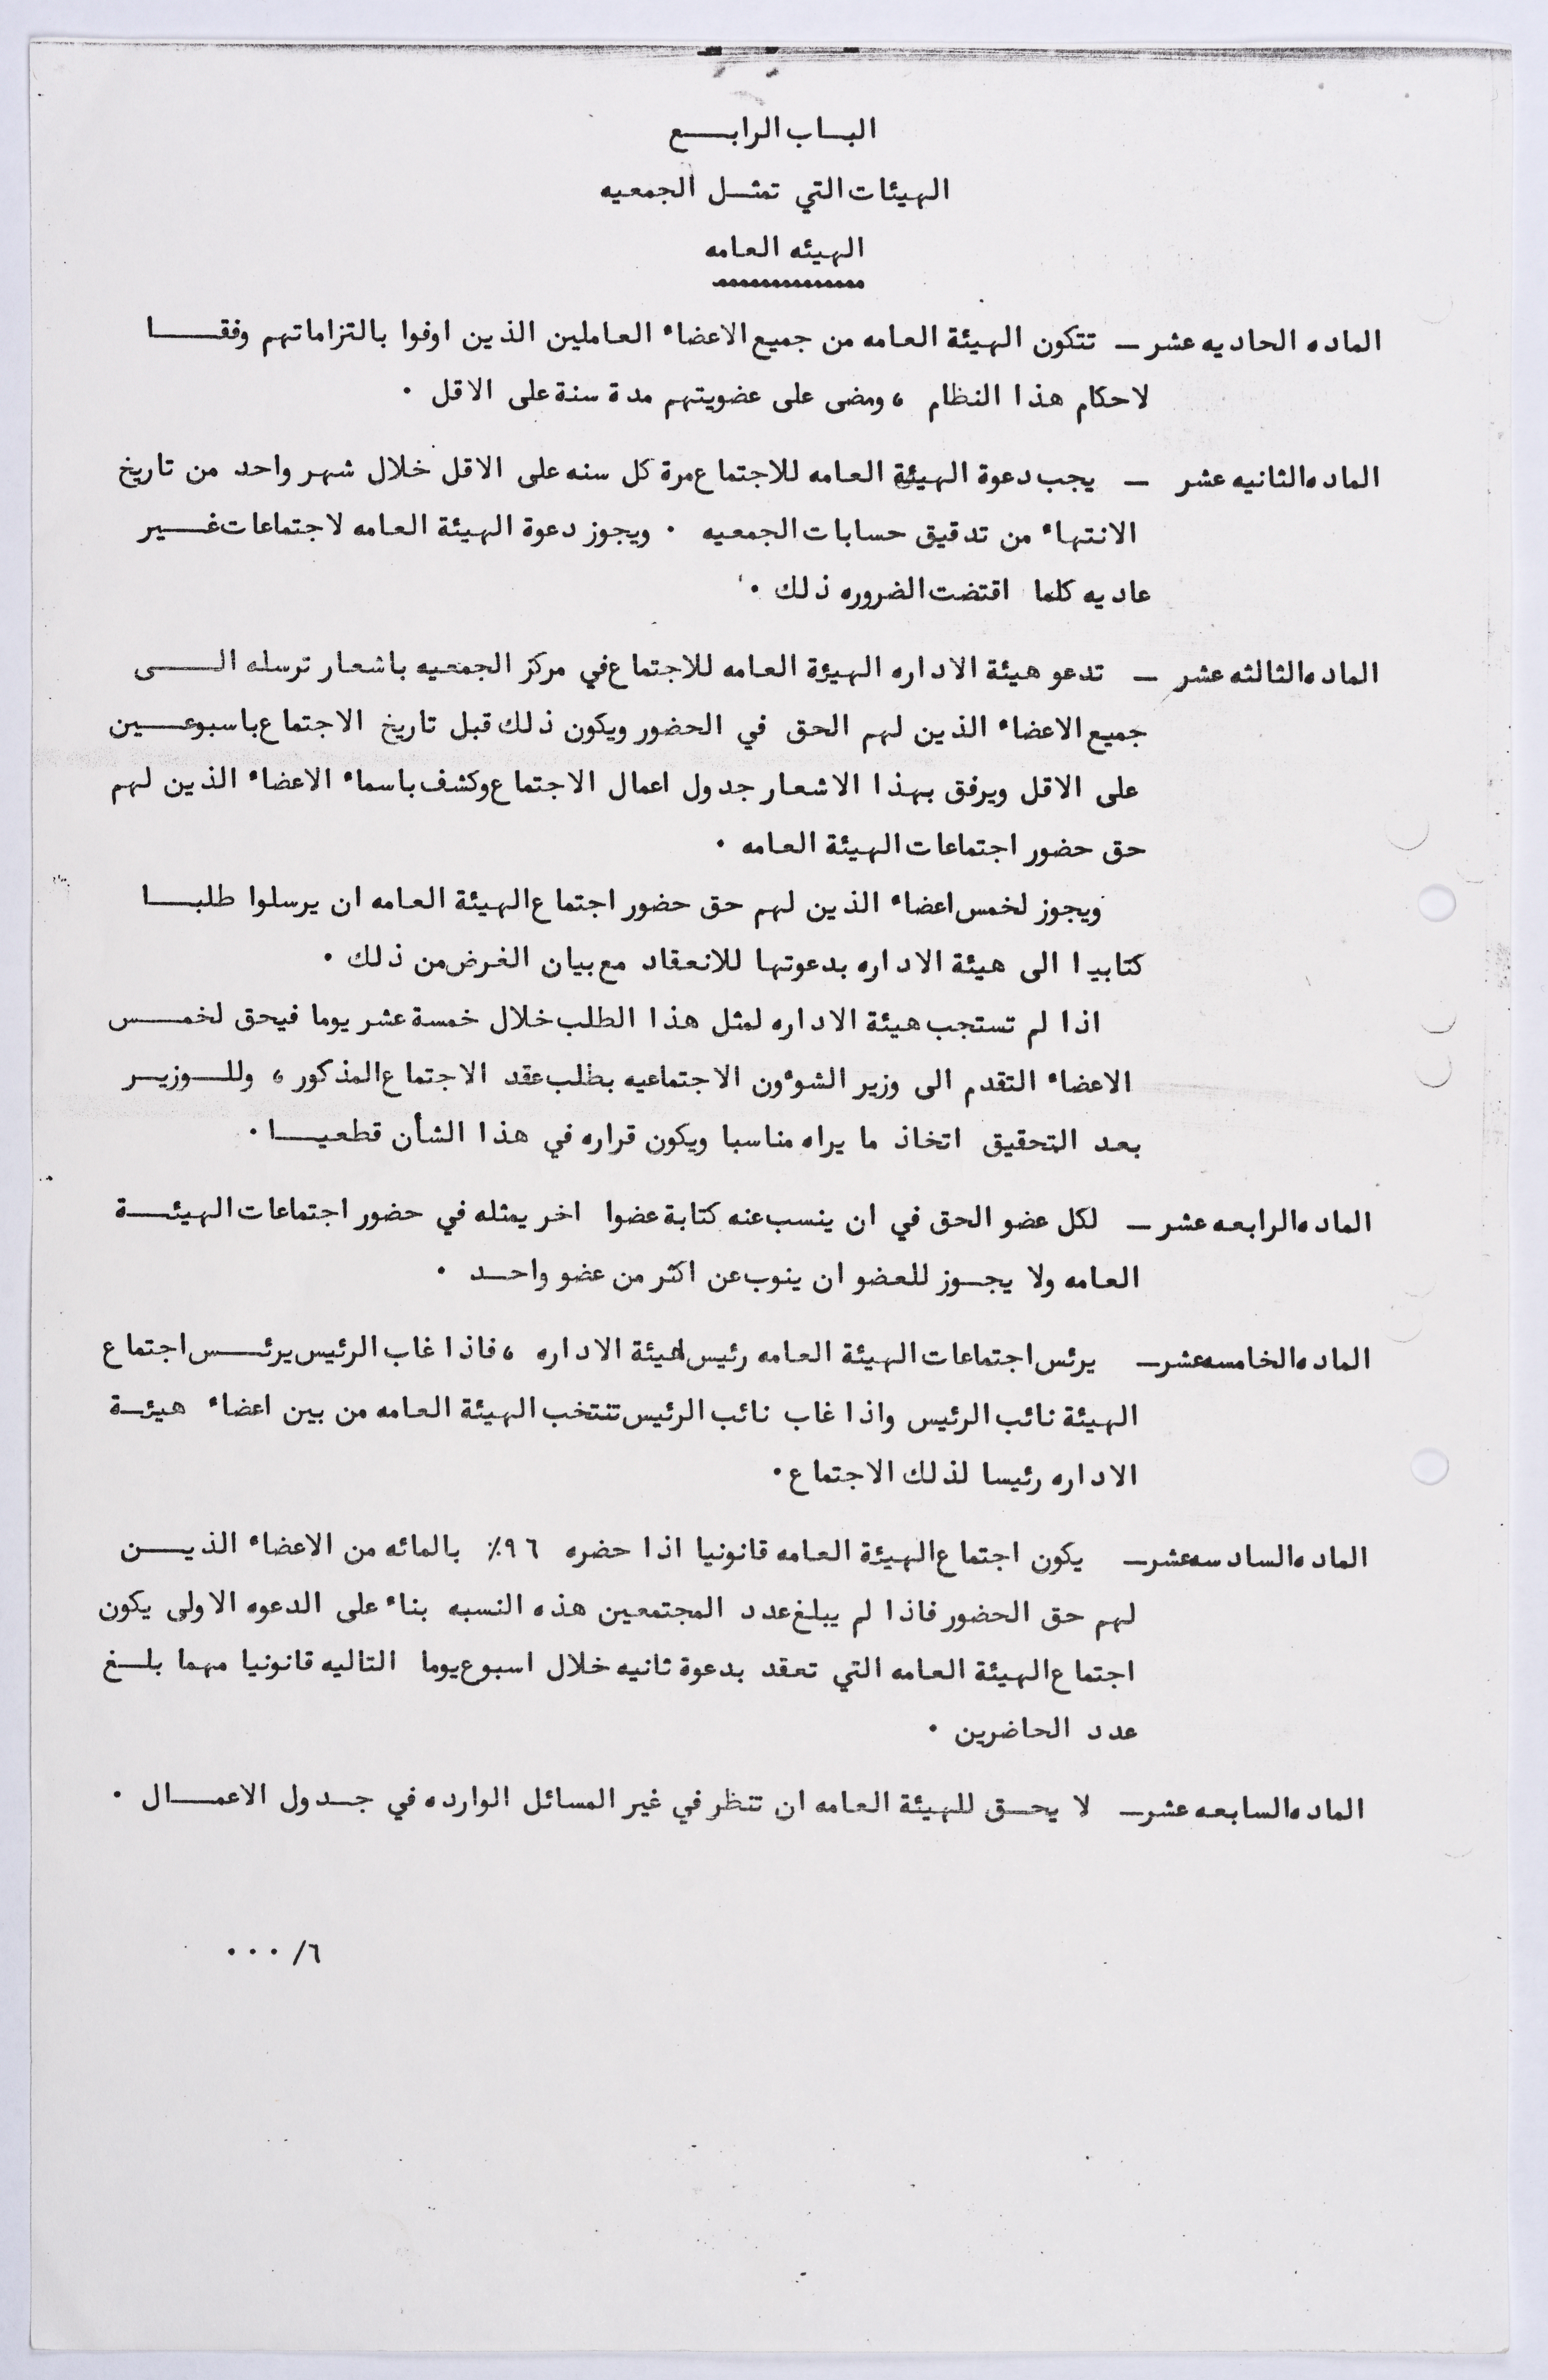 البـاب الرابـــع
الهيئات التي تمثـل الجمعيه
الهيئه العامه
الماده الحاديه عشر ـ تتكون الهيئة العامه من جميع الاعضاء العاملين الذين اوفوا بالتزاماتهم وفقــــا
لاحكام هذا النظام ، ومضى على عضويتهم مدة سنة على الاقل ٠
الماده الثانيه عشر ـ يجب دعوة الهيئة العامه للاجتماع مرة كل سنه على الاقل خلال شهر واحد من تاريخ
الانتهاء من تدقيق حسابات الجمعيه ٠ ويجوز دعوة الهيئة العامه لاجتماعات غــير
عاديه كلما اقتضت الضروره ذلك ٠
الماده الثالثه عشر ـ تدعو هيئة الاداره الهيئة العامه للاجتماع في مركز الجمعيه باشعار ترسله الـــى
جميع الاعضاء الذين لهم الحق في الحضور ويكون ذلك قبل تاريخ الاجتماع باسبوعـــين
على الاقل ويرفق بهذا الاشعار جدول اعمال الاجتماع وكشف باسماء الاعضاء الذين لهم
حق حضور اجتماعات الهيئة العامه ٠
ويجوز لخمس اعضاء الذين لهم حق حضور اجتماع الهيئة العامه ان يرسلوا طلبــا
كتابيا الى هيئة الاداره بدعوتها للانعقاد مع بيان الغرض من ذلك ٠
اذا لم تستجب هيئة الاداره لمثل هذا الطلب خلال خمسة عشر يوما فيحق لخمـــس
الاعضاء التقدم الى وزير الشؤون الاجتماعيه بطلب عقد الاجتماع المذكور ، وللــوزيــر
بعد التحقيق اتخاذ ما يراه مناسبا ويكون قراره في هذا الشأن قطعيــا ٠
الماده الرابعه عشر ـ لكل عضو الحق في ان ينسب عنه كتابة عضوا اخر يمثله في حضور اجتماعات الهيئــة
العامه ولا يجــوز للعضو ان ينوب عن اكثر من عضو واحــد ٠
الماده الخامسه عشر ـ يرئس اجتماعات الهيئة العامه رئيس هيئة الاداره ، فاذا غاب الرئيس يرئــس اجتماع
الهيئة نائب الرئيس واذا غاب نائب الرئيس تنتخب الهيئة العامه من بين اعضاء هيئة
الاداره رئيسا لذلك الاجتماع ٠
الماده السادسه عشر ـ يكون اجتماع الهيئة العامه قانونيا اذا حضره ٩٦٪ بالمائه من الاعضاء الذيــن
لهم حق الحضور فاذا لم يبلغ عدد المجتمعين هذه النسبه بناء على الدعوه الاولى يكون
اجتماع الهيئة العامه التي تعقد بدعوة ثانيه خلال اسبوع يوما التاليه قانونيا مهما بلــغ
عدد الحاضرين ٠
الماده السابعه عشر ـ لا يحــق للهيئة العامه ان تنظر في غير المسائل الوارده في جــدول الاعمــال ٠
٦/ ٠٠٠